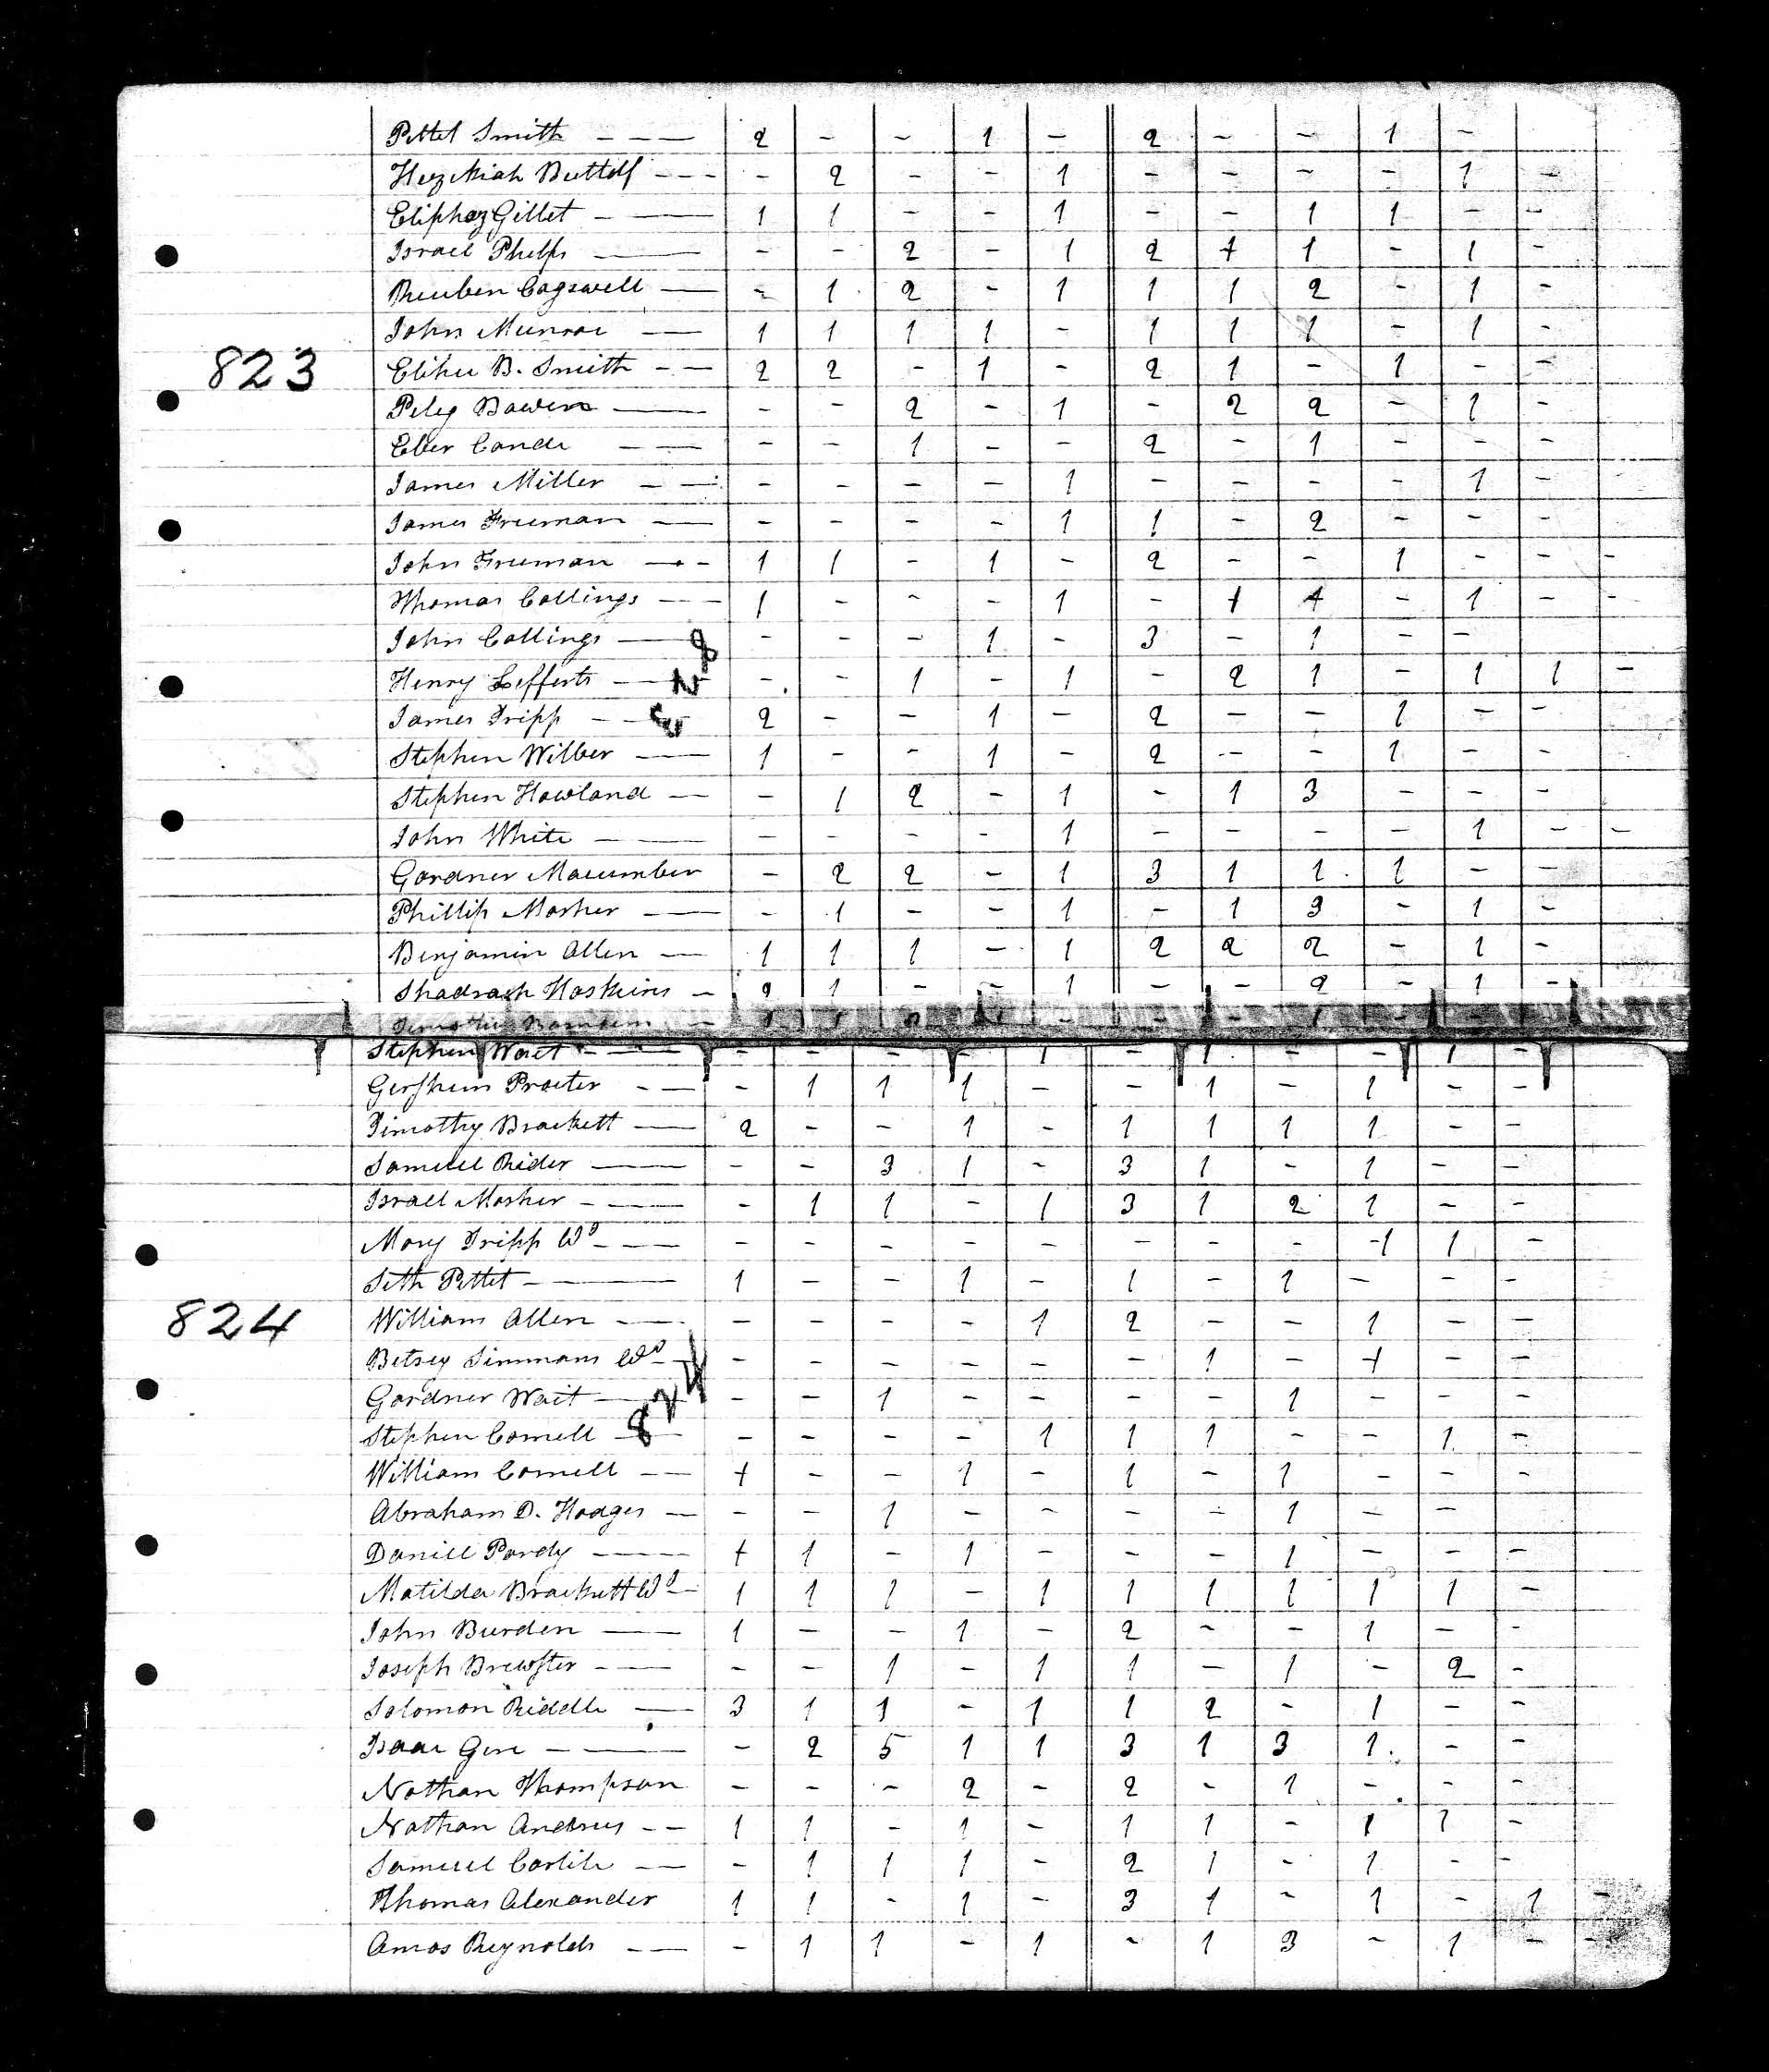 Pettet Smith - - - 2 - - 1 - 2 - - 1 -
Hezekiah Buttolf - - - - 2 - - 1 - - - - 1 -
Eliphaz Gillet - - 1 1 - - 1 - - 1 1 - -
Israel Phelps - - - 2 - 1 2 1 1 - 1 -
Reuben Cogswell - - 1 2 - 1 1 1 2 - 1 -
John Munroe - 1 1 1 1 - 1 1 1 - 1 -
823
Elihu B. Smith - - 2 2 - 1 - 2 1 - 1 - -
Peleg Bowen - - - 2 - 1 - 2 2 - 1 -
Eber Cande - - - - 1 - - 2 - 1 - - -
James Miller - - - - - - 1 - - - - 1 -
James Freeman - - - - - 1 1 - 2 - - -
John Freeman - - 1 1 - 1 - 2 - - 1 - - -
Thomas Collings - - - 1 - - - 1 - 1 1 - 1 - -
John Collings - - - - 1 - 3 - 1 - -
823
Henry Lefferts - - - 1 - 1 - 2 1 - 1 1 -
James Tripp - - 2 - - 1 - 2 - - 1 - -
Stephen Wilber - 1 - - 1 - 2 - - 1 - -
Stephen Howland - - 1 2 - 1 - 1 3 - - -
John White - - - - - 1 - - - - 1 - -
Gardner Macumber - 2 2 - 1 3 1 1 1 - -
Phillip Mosher - - 1 - - 1 - 1 3 - 1 -
Benjamin Allen - 1 1 1 - 1 2 2 2 - 1 -
Shadrach Hoskins - 2 1 - - 1 - - 2 - 1 -
Stephen Wait - - - - - - - 1 - 1 - - 1 -
Gershum Procter - - - 1 1 1 - - 1 - 1 - -
Timothy Brackett - 2 - - 1 - 1 1 1 1 - -
Samuel Rider - - - 3 1 - 3 1 - 1 - -
Israel Mosher - - - 1 1 - 1 3 1 2 1 - -
Mary Tripp Wd - - - - - - - - - - - 1 1 -
Seth Pettet - - 1 - - 1 - 1 - 1 - - -
824
William Allen - - - - - - 1 2 - - 1 - -
Betsey Simmons Wd - - - - - - - 1 - 1 - -
Gardner Wait - - - 1 - - - - 1 - - -
824
Stephen Cornell - - - - - 1 1 1 - - 1 -
William Cornell - - 1 - - 1 - 1 - 1 - - -
Abraham D. Hodges - - - 1 - - - - 1 - -
Daniel Pardy - - 1 1 - 1 - - - 1 - - -
Matilda Brackett Wd - 1 1 1 - 1 1 1 1 1 1 -
John Burden - 1 - - 1 - 2 - - 1 - -
Joseph Brewster - - - - 1 - 1 1 - 1 - 2 -
Solomon Riddle - 3 1 1 - 1 1 2 - 1 - -
Isaac Gere - - - 2 5 1 1 3 1 3 1 - -
Nathan Thompson - - - 2 - 2 - 1 - - -
Nathan Andrus - - 1 1 - 1 - 1 1 - 1 1 -
Samuel Carlile - - - 1 1 1 - 2 1 - 1 - -
Thomas Alexander 1 1 - 1 - 3 1 - 1 - 1 -
Amos Reynolds - - - 1 1 - 1 - 1 3 - 1 - -